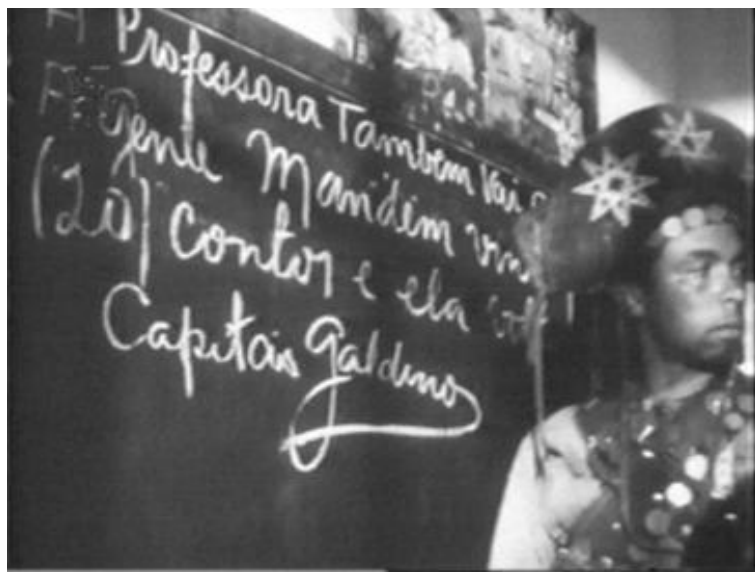 A Professora Tambem Vai
A Gente Mandem
(20) Contos e ela
Capitão Galdino